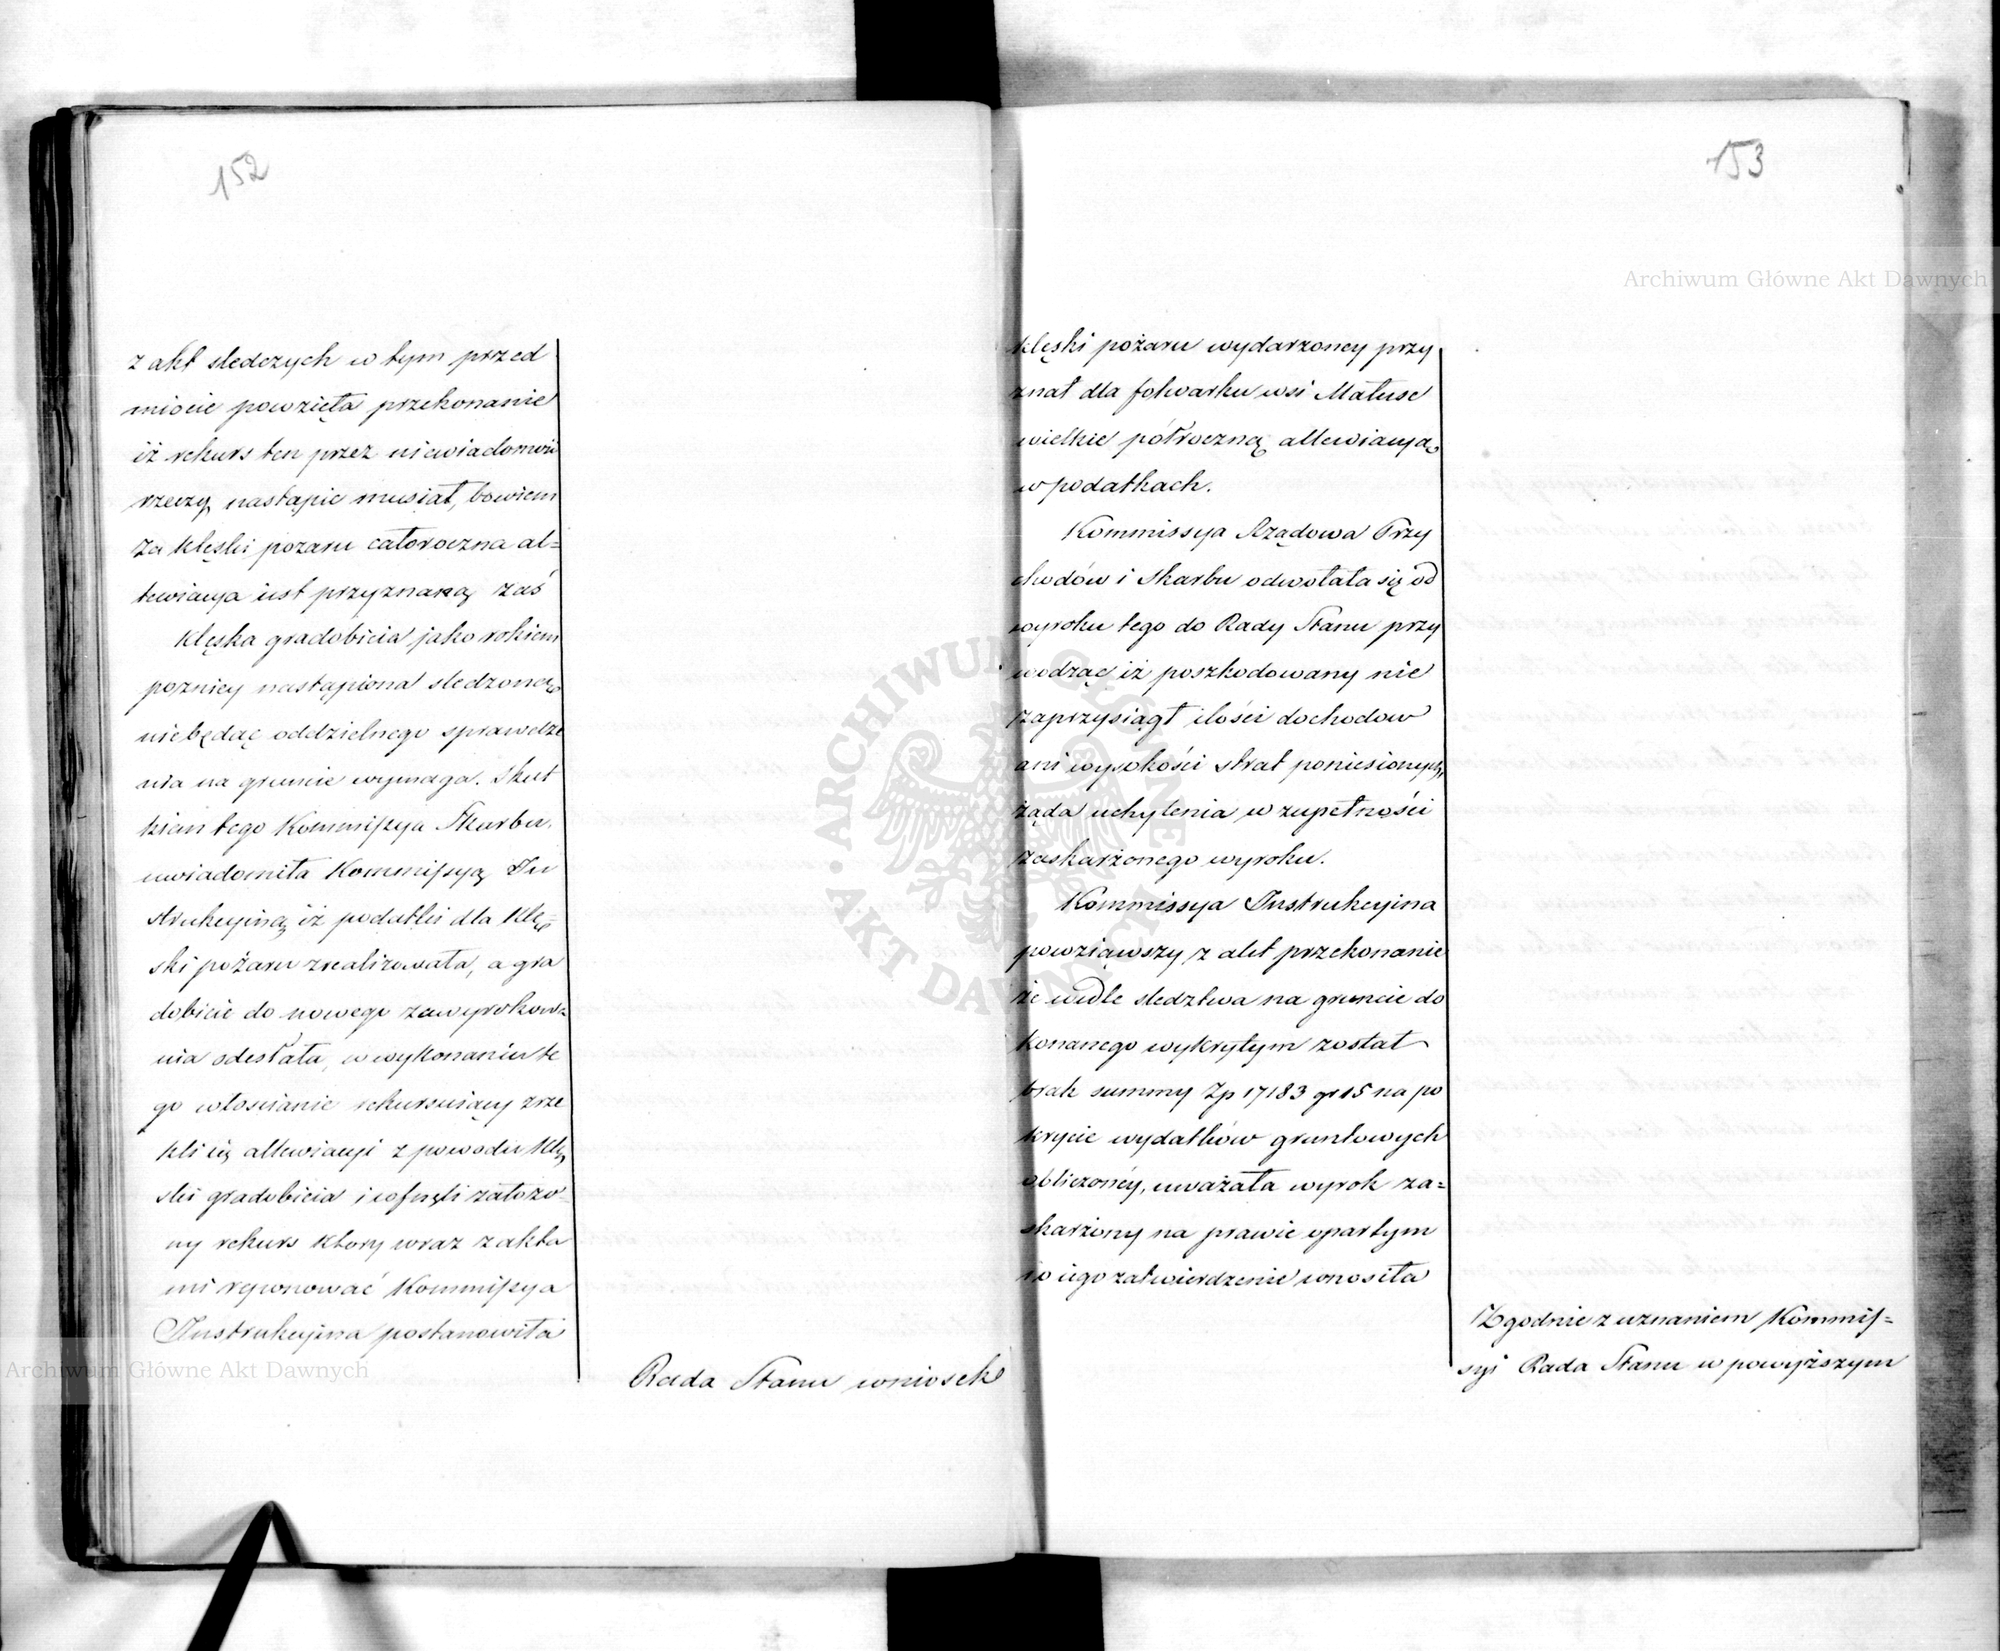 152
z akt sledczych w tym przed
miocie powzięta przekonanie
iż rekurs ten przez niewiadomość
rzeczy nastąpic musiał, bowiem
za klęski pozaru całoroczna al=
lewiacya iest przyznaną zaś
klęska gradobicia jako rokiem
pozniey nastąpiona sledzoną
niebędąc oddzielnego sprawdze
nia na gruncie wymaga. Skut
kiem tego Kommissya Skarbu
uwiadomiła Kommissyą In
strukcyiną iż podatki dla klę=
ski pożaru zrealizowała, a gra
dobicie do nowego zawyrokowa
nia odesłała, w wykonaniu te
go włoscianie rekursuiący zrze
kli się allewiacyi z powodu klę
ski gradobicia i cofnęli założo
ny rekurs ktory wraz z akta
mi rejwnować Kommissya
Instrukcyina postanowiła
Rada Stanu wniosek
153
klęski pożaru wydarzoney przy
znał dla folwarku wsi Matuse
wielkie półroczną allewiacyą
w podatkach.
Kommissya Rządowa Przy
chodów i Skarbu odwołała się od
wyroku tego do Rady Stanu przy
wodząc iż poszkodowany nie
zaprzysiągł ilości dochodow
ani wysokości strat poniesionych,
żąda uchylenia w zupełności
zaskarżonego wyroku.
Kommissya Instrukcyina
powziąwszy z akt przekonanie
że wedle sledztwa na gruncie do
konanego wykrytym został
brak summy Zp 17183 gr 15 na po
krycie wydatków gruntowych
obliczoney, uważała wyrok za=
skarżony na prawie opartym
i o iego zatwierdzenie wnosiła
Zgodnie z uznaniem Kommis=
syi Rada Stanu w powyższym
Archiwum Główne Akt Dawnych
Archiwum Główne Akt Dawnych
ARCHIWUM GŁÓWNE AKT DAWNYCH